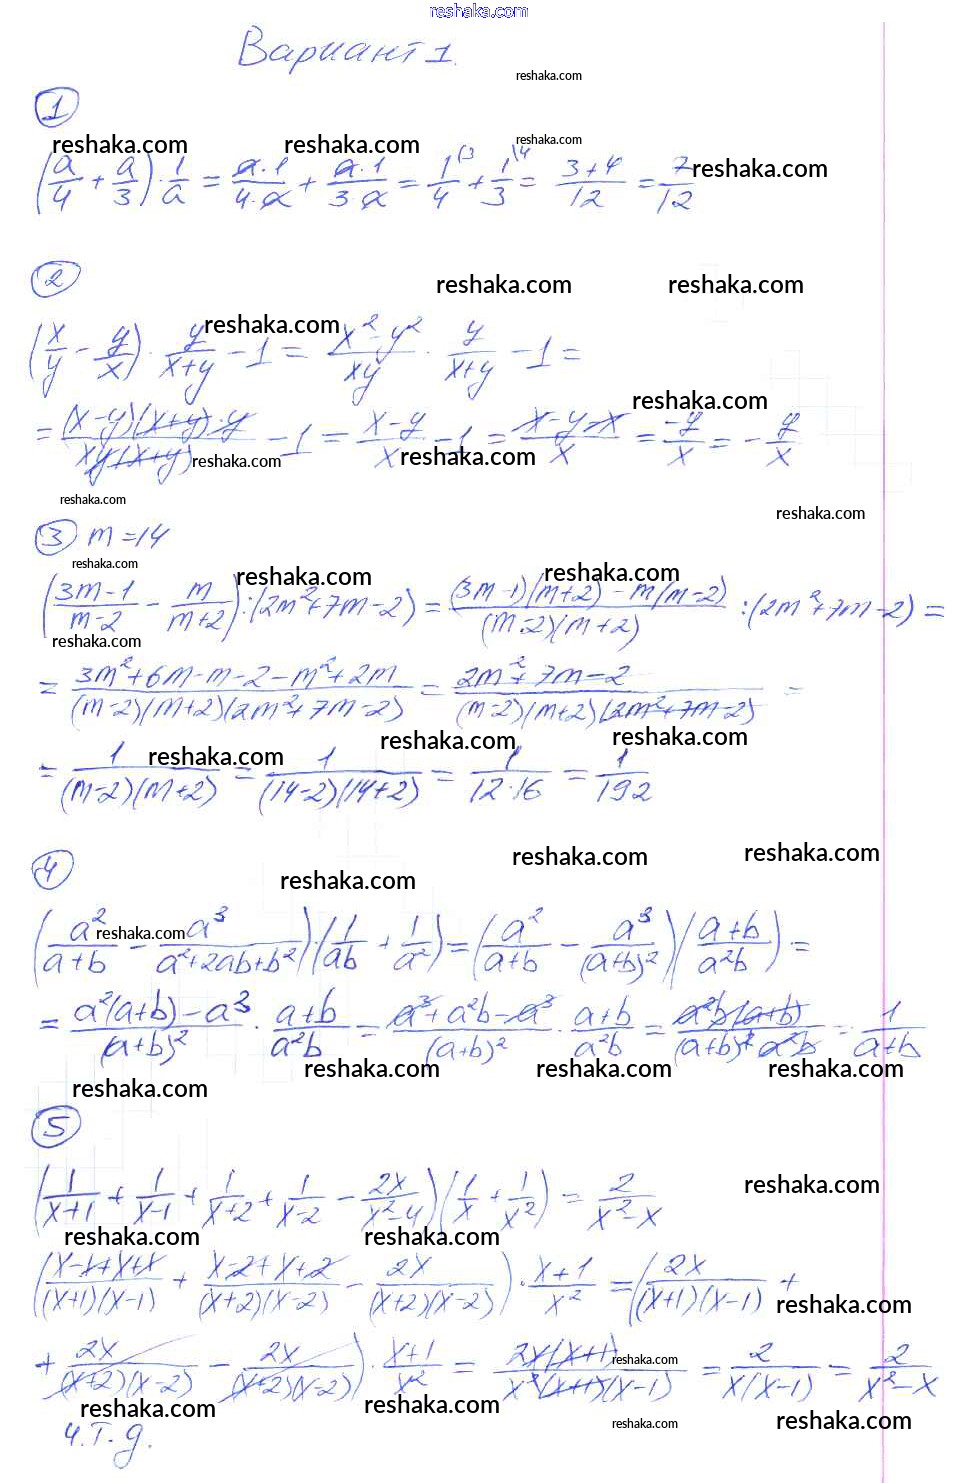 reshaka.com
Вариант 1.
reshaka.com
1
reshaka.com reshaka.com reshaka.com
(a/4 + a/3) · 1/a = a·1/4·a + a·1/3·a = 1/4 \3 + 1/3 \4 = 3+4/12 = 7/12 reshaka.com
2
reshaka.com reshaka.com
reshaka.com
(x/y - y/x) · y/x+y - 1 = x²-y²/xy · y/x+y - 1 =
reshaka.com
= (x-y)(x+y)·y/xy(x+y) - 1 = x-y/x - 1 = x-y-x/x = -y/x = - y/x
reshaka.com reshaka.com
reshaka.com reshaka.com
3 m=14
reshaka.com
reshaka.com reshaka.com
(3m-1/m-2 - m/m+2) : (2m²+7m-2) = (3m-1)(m+2) - m(m-2)/(m-2)(m+2) : (2m²+7m-2) =
reshaka.com
= 3m²+6m-m-2-m²+2m/(m-2)(m+2)(2m²+7m-2) = 2m²+7m-2/(m-2)(m+2)(2m²+7m-2) =
reshaka.com reshaka.com reshaka.com
= 1/(m-2)(m+2) = 1/(14-2)(14+2) = 1/12·16 = 1/192
4
reshaka.com reshaka.com reshaka.com
reshaka.com
(a²/a+b - a³/a²+2ab+b²)·(1/ab + 1/a²) = (a²/a+b - a³/(a+b)²)(a+b/a²b) =
= a²(a+b)-a³/(a+b)² · a+b/a²b = a³+a²b-a³/(a+b)² · a+b/a²b = a²b(a+b)/(a+b)²·a²b = 1/a+b
reshaka.com reshaka.com reshaka.com reshaka.com
5
reshaka.com
(1/x+1 + 1/x-1 + 1/x+2 + 1/x-2 - 2x/x²-4)(1/x + 1/x²) = 2/x²-x
reshaka.com reshaka.com
(x-1+x+x/(x+1)(x-1) + x-2+x+2/(x+2)(x-2) - 2x/(x+2)(x-2)) · x+1/x² = (2x/(x+1)(x-1) +
reshaka.com
+ 2x/(x+2)(x-2) - 2x/(x+2)(x-2)) · x+1/x² = 2x(x+1)/x²(x+1)(x-1) = 2/x(x-1) = 2/x²-x
reshaka.com
reshaka.com reshaka.com reshaka.com reshaka.com
ч.т.д.